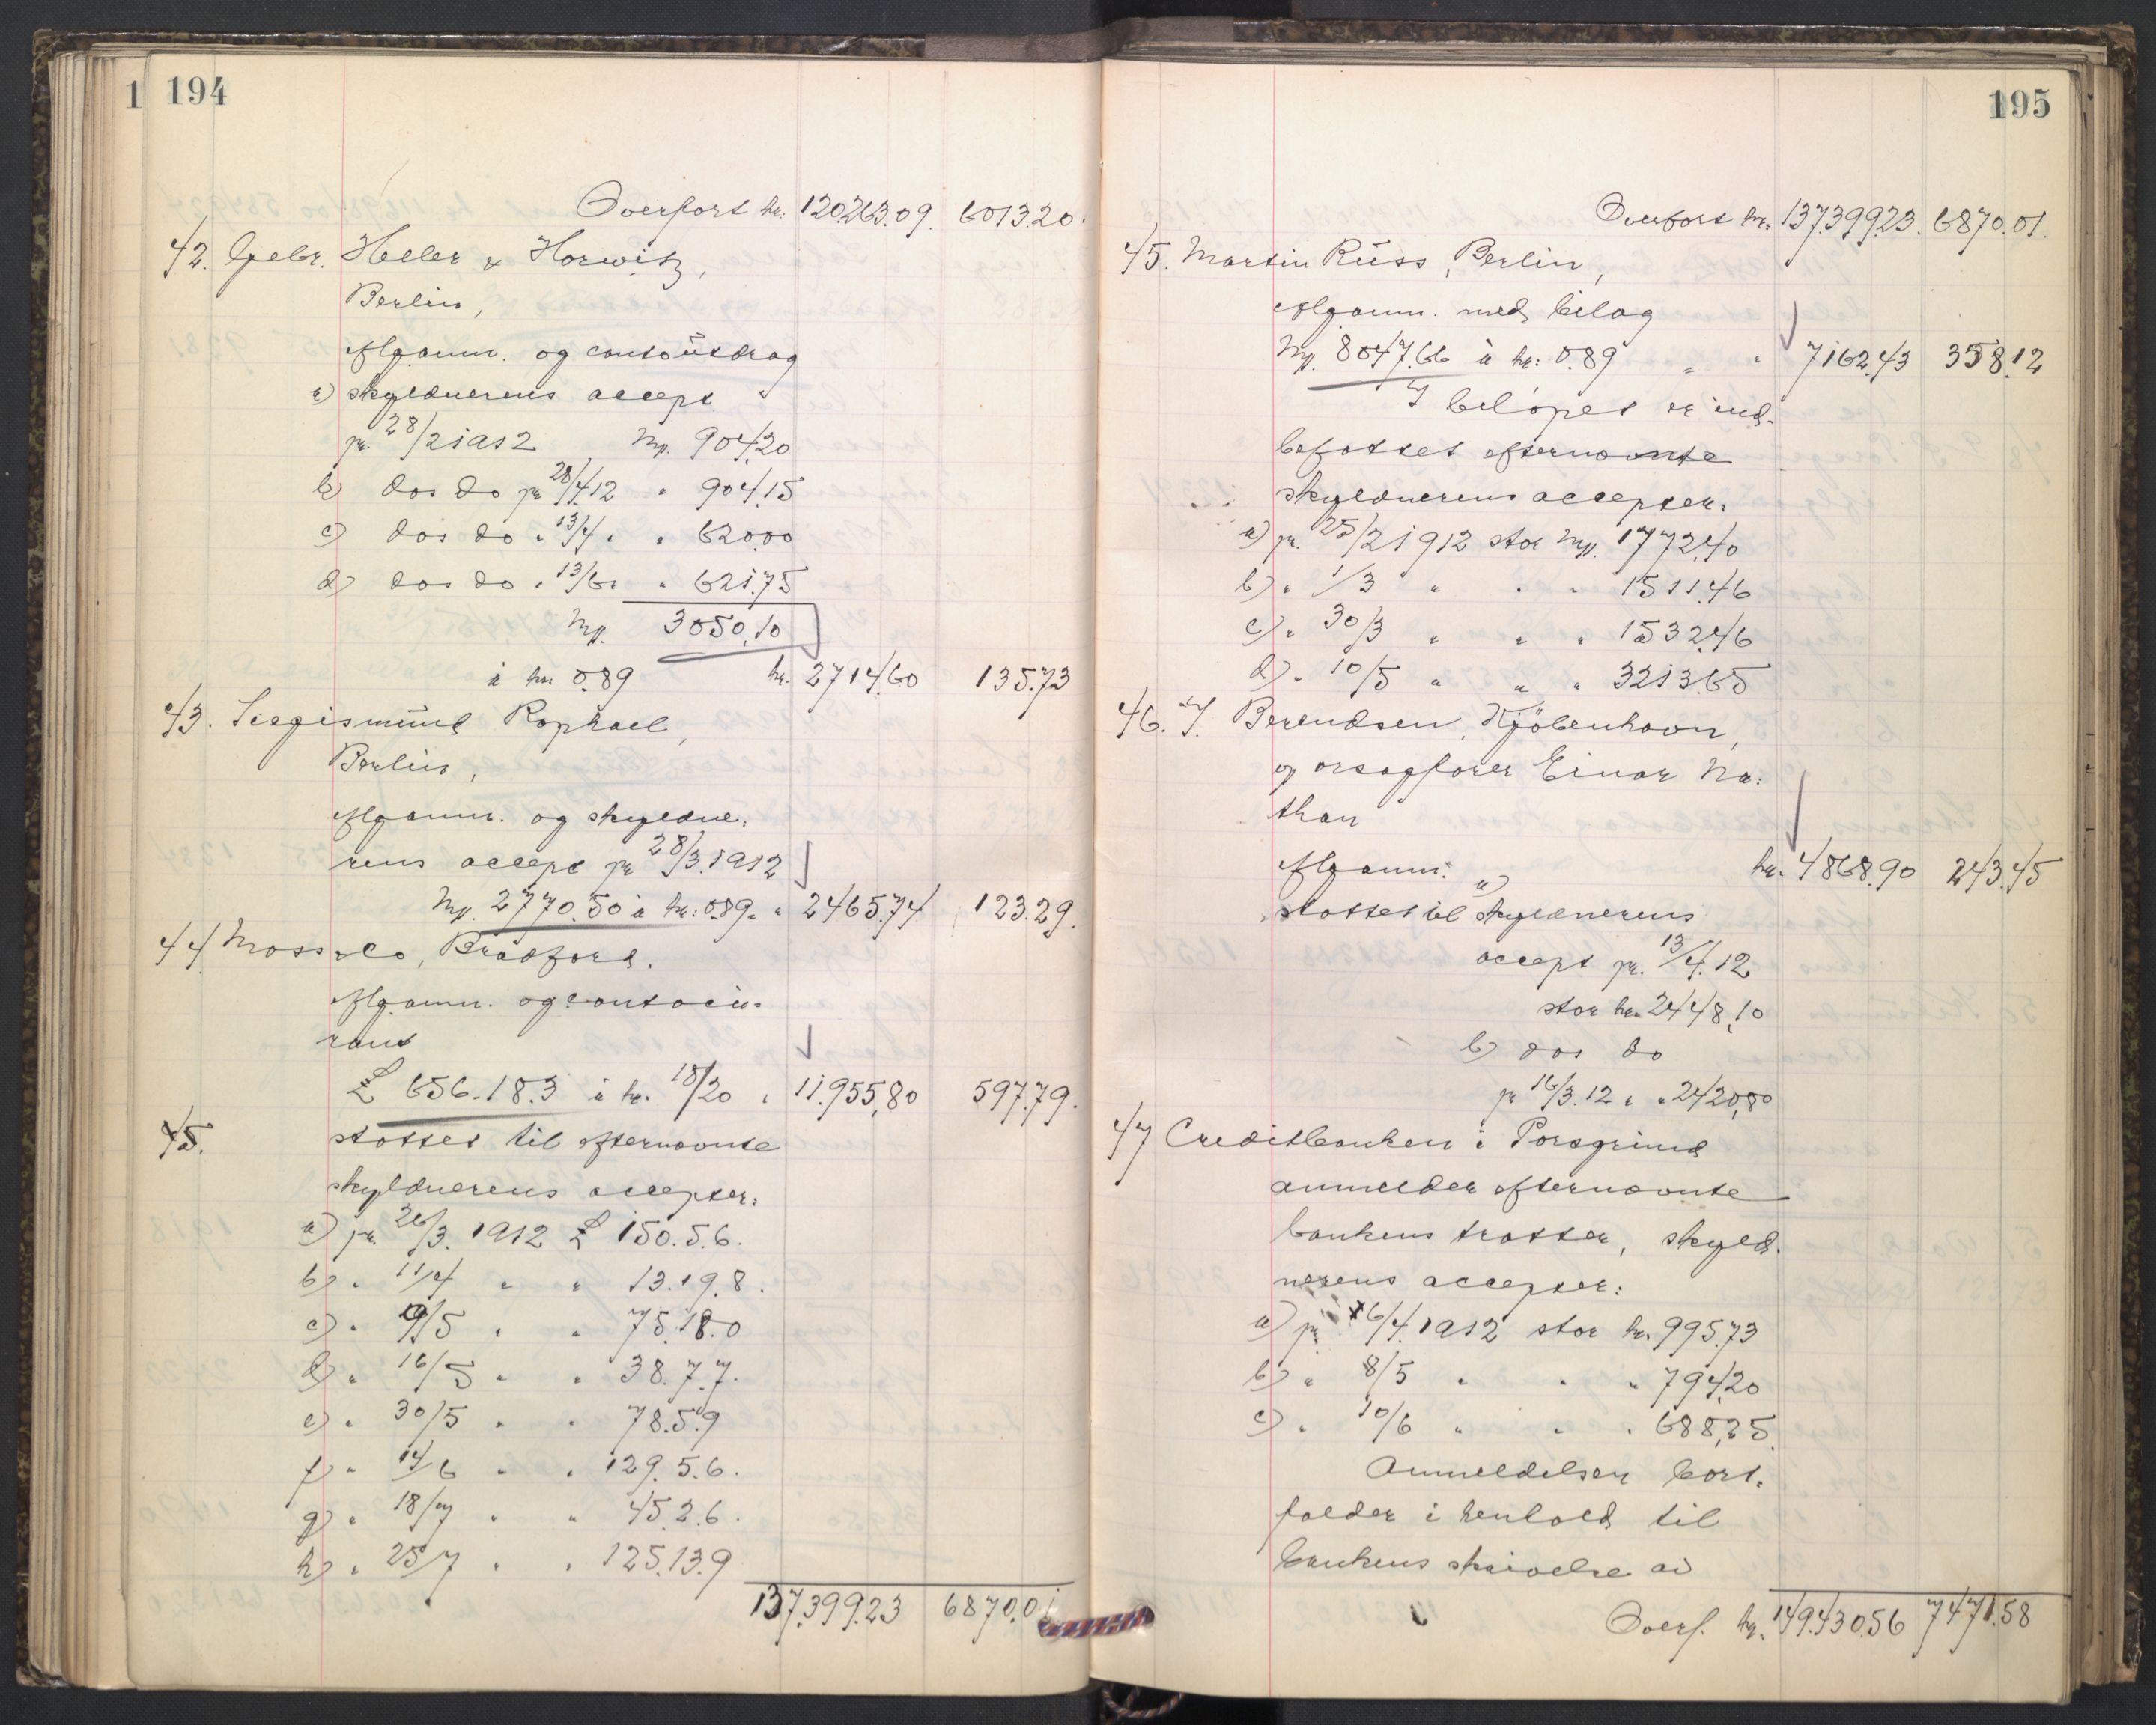 1 194
Overført kr. 120.263.09. 6013.20.
42. Gebr. Heller & Horwitz,
Berlin,
Afganm. og contoutdrag
a) skyldnerens accept
pr. 28/2 1912 Mk. 904,20
b) dos do pr 28/4.12 " 904.15
c) dos do " 13/4 " " 620,00
d) dos do " 13/6 " " 621.75
Mk. 3050,10
à kr. 0.89 kr. 2714.60 135.73
43. Siegismund Raphael,
Berlin,
Afganm. og skyldne-
rens accept pr 28/3.1912
Mk. 2770.50 à kr: 0.89 " " 2465.74 123.29.
44. Moss & Co, Bradford.
Afganm. og contocu-
rant
£ 656.18.3 à kr. 18/20 " 11.955,80 597.79.
45. støttet til efternævnte
skyldnerens accepter:
a) pr. 26/3. 1912 £ 150.5.6.
b) " 11/4 " " 13.19.8.
c) " 9/5 " " 75.18.0
d) " 16/5 " " 38.7.7.
e) " 30/5 " " 78.5.9
f) " 14/6 " " 129.5.6.
g) " 18/7 " " 45.2.6.
h) " 25/7 " " 125.13.9
137.399.23 6870.01
195
Overført kr. 137.399.23. 6870.01.
45. Martin Russ, Berlin,
Afganm. med bilag
Mk. 8047.66 à kr: 0.89 " " 7162.43 358.12
I beløpet er ind-
befattet efternævnte
skyldnerens accepter:
a) pr. 25/2 1912 stor Mk. 1772.40
b) " 1/3 " " " 1511.46
c) " 30/3 " " " 1532.46
d) " 10/5 " " " 3213.65
46. I. Berendsen, Kjöbenhavn,
og orsagfører Einar Na-
than
Afganm. kr. 4868.90 243.45
støttet til a) skyldnerens
accept pr. 13/4.12
stor kr. 2448,10
b) dos do
pr 16/3.12 " " 2420,80
47 Creditbanken i Porsgrund
anmelder efternævnte
bankens tratter, skyld-
nerens accepter:
a) pr. 16/4.1912 stor kr. 995.73
b) " 8/5 " " " 794,20
c) " 10/6 " " " 688,35.
Anmeldelsen bort-
falder i henhold til
bankens skrivelse av
Overf. kr. 149.430.56 7471.58